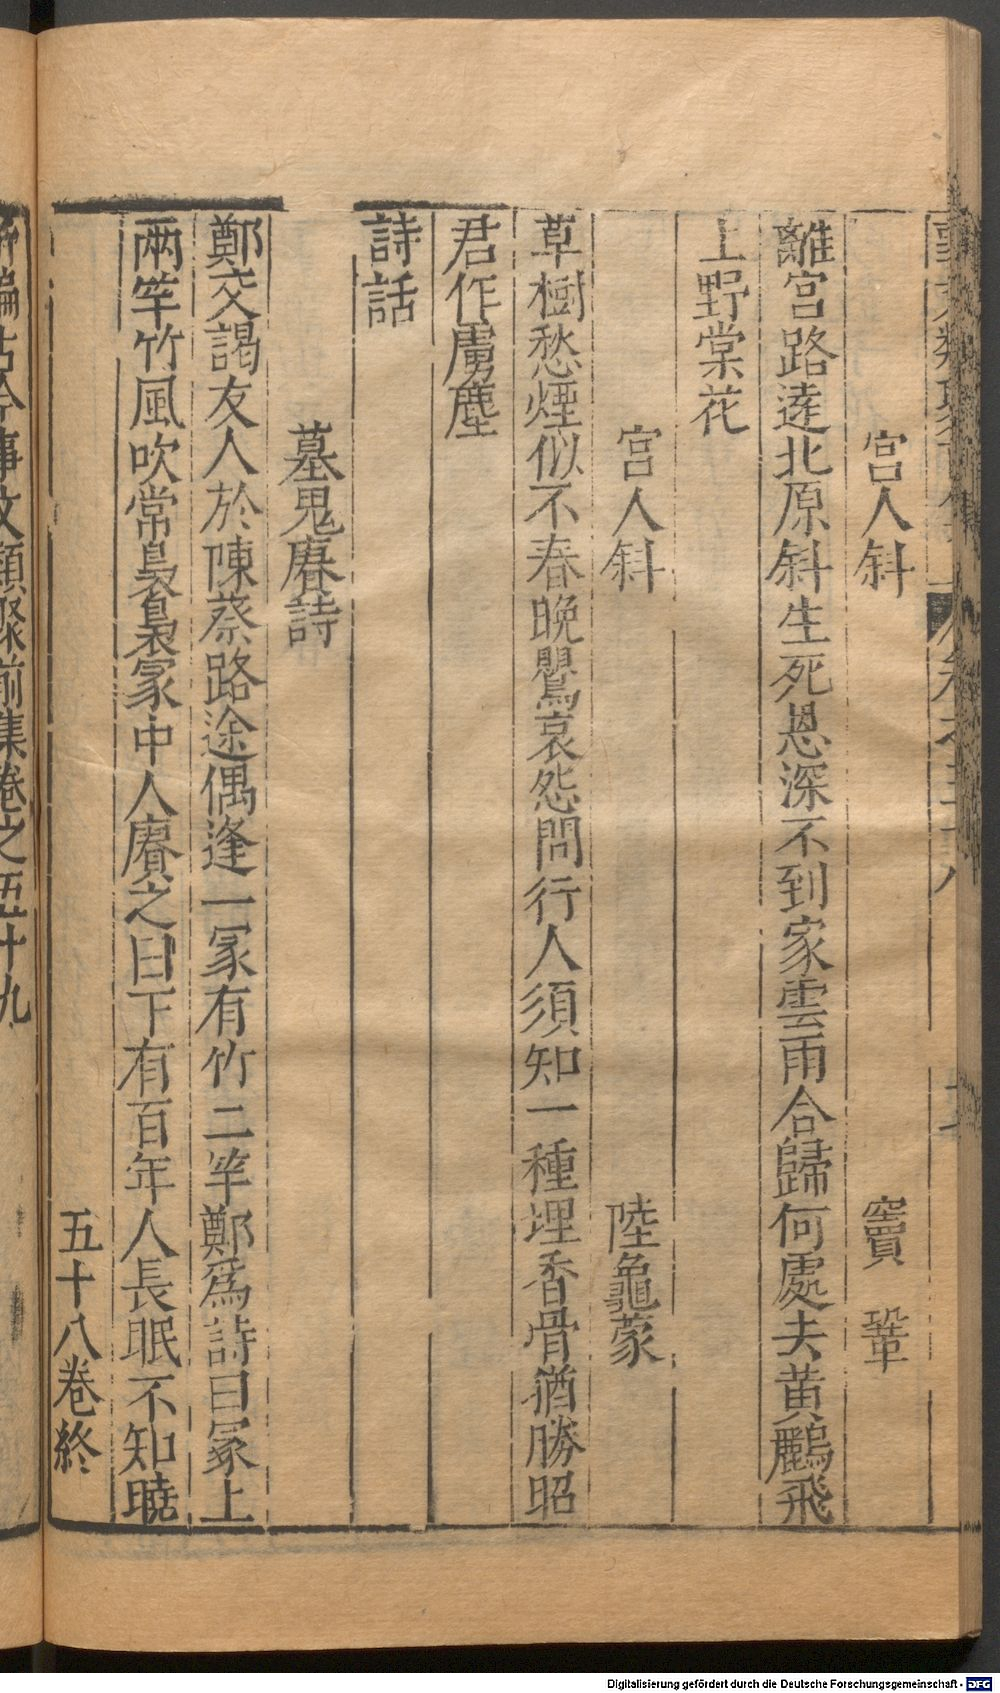 宮人斜　竇鞏
離宮路逺北原斜生死恩深不到家雲雨合歸何處夫黄鸝飛
上野棠花
宮人斜　陸龜蒙
草樹愁煙似不春晚鸎哀怨問行人須知一種埋香骨猶勝昭
君作虜塵
詩話
墓鬼賡詩
鄭交謁友人於陳蔡路途偶逢一冢有竹二竿鄭爲詩曰冢上
兩竿竹風吹常裊裊冢中人賡之曰下有百年人長眠不知曉
五十八卷終
新編古今事文類聚前集卷之五十九
Digitalisierung gefördert durch die Deutsche Forschungsgemeinschaft - DFG